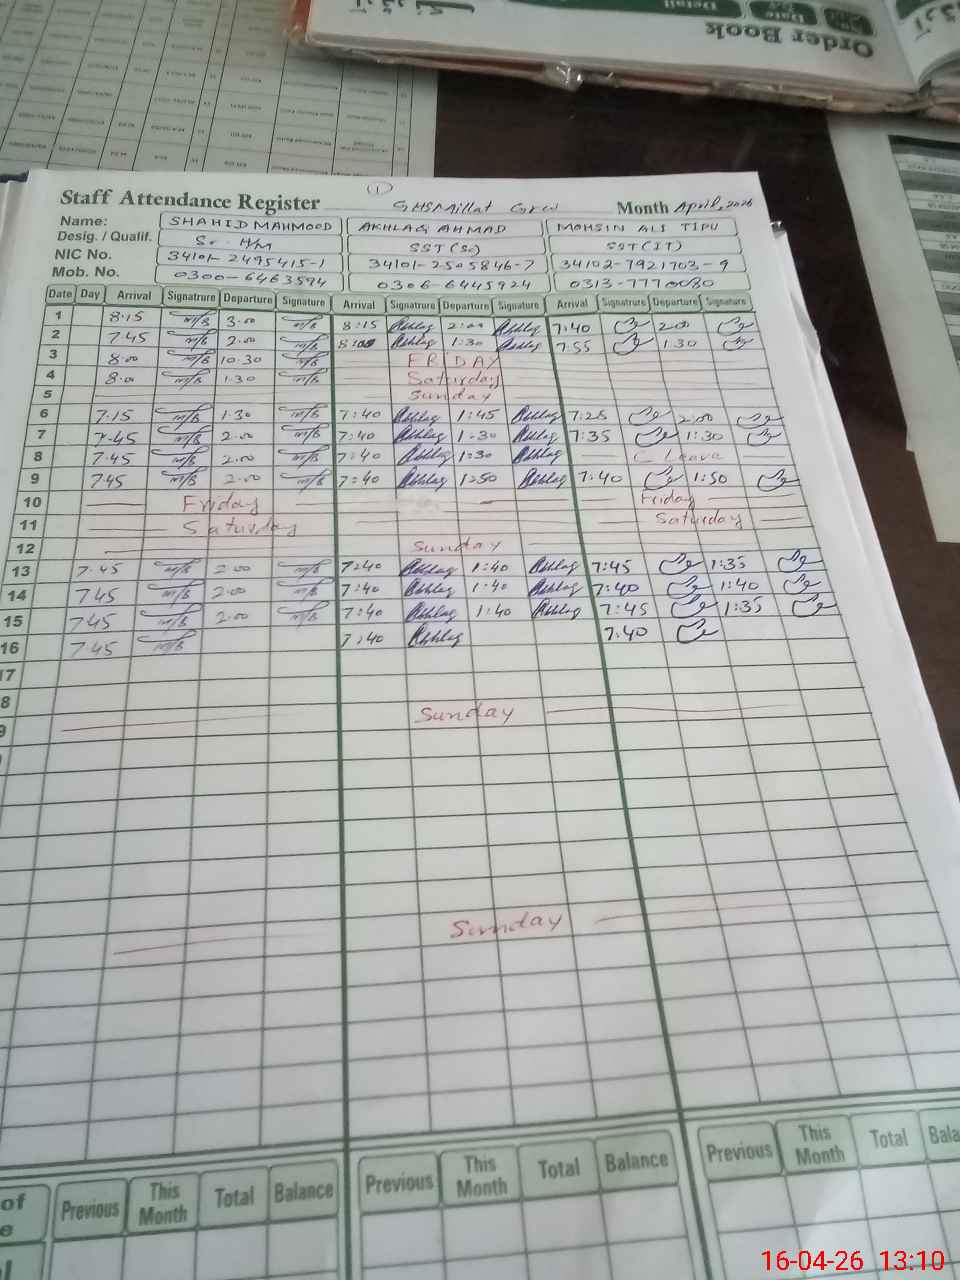 Order Book
Detail
Date
Staff Attendance Register
1
GHS Millat Grw
Month April, 2026
Name: SHAHID MAHMOOD AKHLAQ AHMAD MOHSIN ALI TIPU
Desig. / Qualif. Sr. H/M SST (Sc) SST (IT)
NIC No. 34101-2495415-1 34101-2505846-7 34102-7921703-9
Mob. No. 0300-6463594 0306-6445924 0313-7770080
Date Day Arrival Signatrure Departure Signature Arrival Signatrure Departure Signature Arrival Signatrure Departure Signature
1 8.15 m/B 3.00 m/B 8:15 Akhlaq 2:00 Akhlaq 7:40 2:00
2 7.45 m/B 2.00 m/B 8:00 Akhlaq 1:30 Akhlaq 7:55 1:30
3 8.00 m/B 10.30 m/B FRIDAY
4 8.00 m/B 1.30 m/B Saturday
5 Sunday
6 7.15 m/B 1.30 m/B 7:40 Akhlaq 1:45 Akhlaq 7:25 2:00
7 7.45 m/B 2.00 m/B 7:40 Akhlaq 1:30 Akhlaq 7:35 1:30
8 7.45 m/B 2.00 m/B 7:40 Akhlaq 1:30 Akhlaq C Leave
9 7.45 m/B 2.00 m/B 7:40 Akhlaq 1:50 Akhlaq 7:40 1:50
10 Friday Friday
11 Saturday Saturday
12 Sunday
13 7.45 m/B 2.00 m/B 7:40 Akhlaq 1:40 Akhlaq 7:45 1:35
14 7.45 m/B 2.00 m/B 7:40 Akhlaq 1:40 Akhlaq 7:40 1:40
15 7.45 m/B 2.00 m/B 7:40 Akhlaq 1:40 Akhlaq 7:45 1:35
16 7.45 m/B 7:40 Akhlaq 7:40
17
8
9 Sunday
Sunday
of Previous This Month Total Balance Previous This Month Total Balance Previous This Month Total Bala
16-04-26 13:10